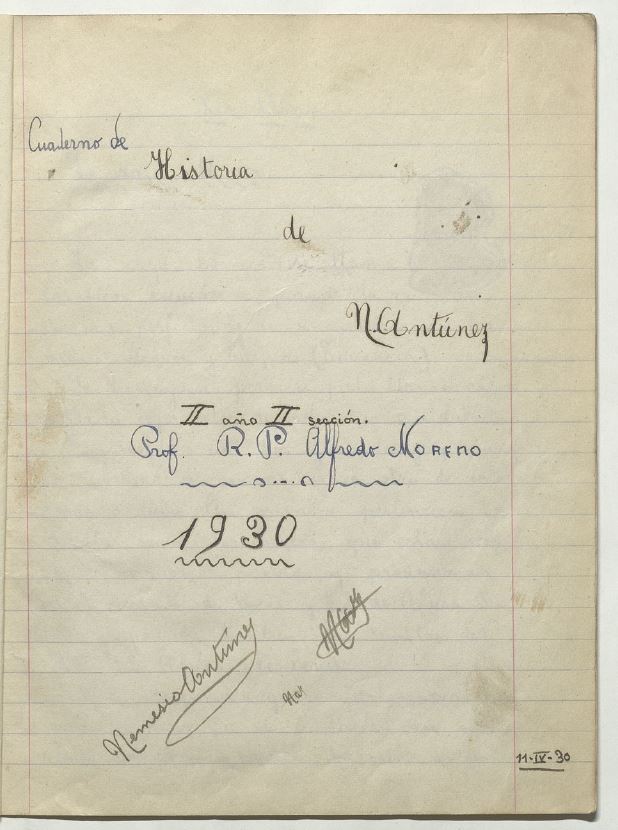 Cuaderno de
Historia
de
N. Antúnez
II año II sección.
Prof. R. P. Alfredo Moreno
1930
Nemesio Antúnez
11-IV-30